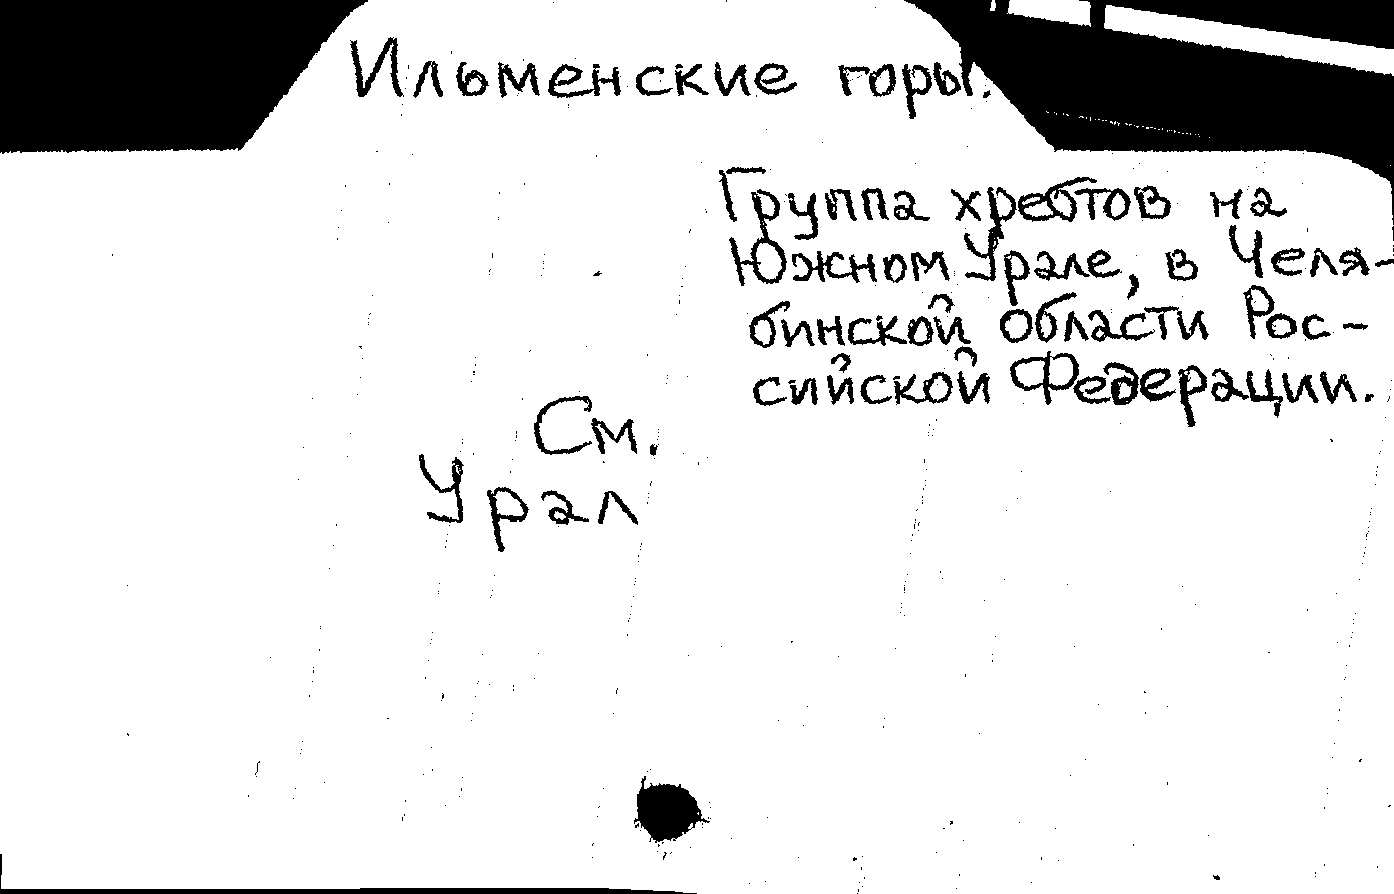 Ильменские горы.
Группа хребтов на
Южном Урале, в Челя-
бинской области Рос-
сийской Федерации.
См.
Урал